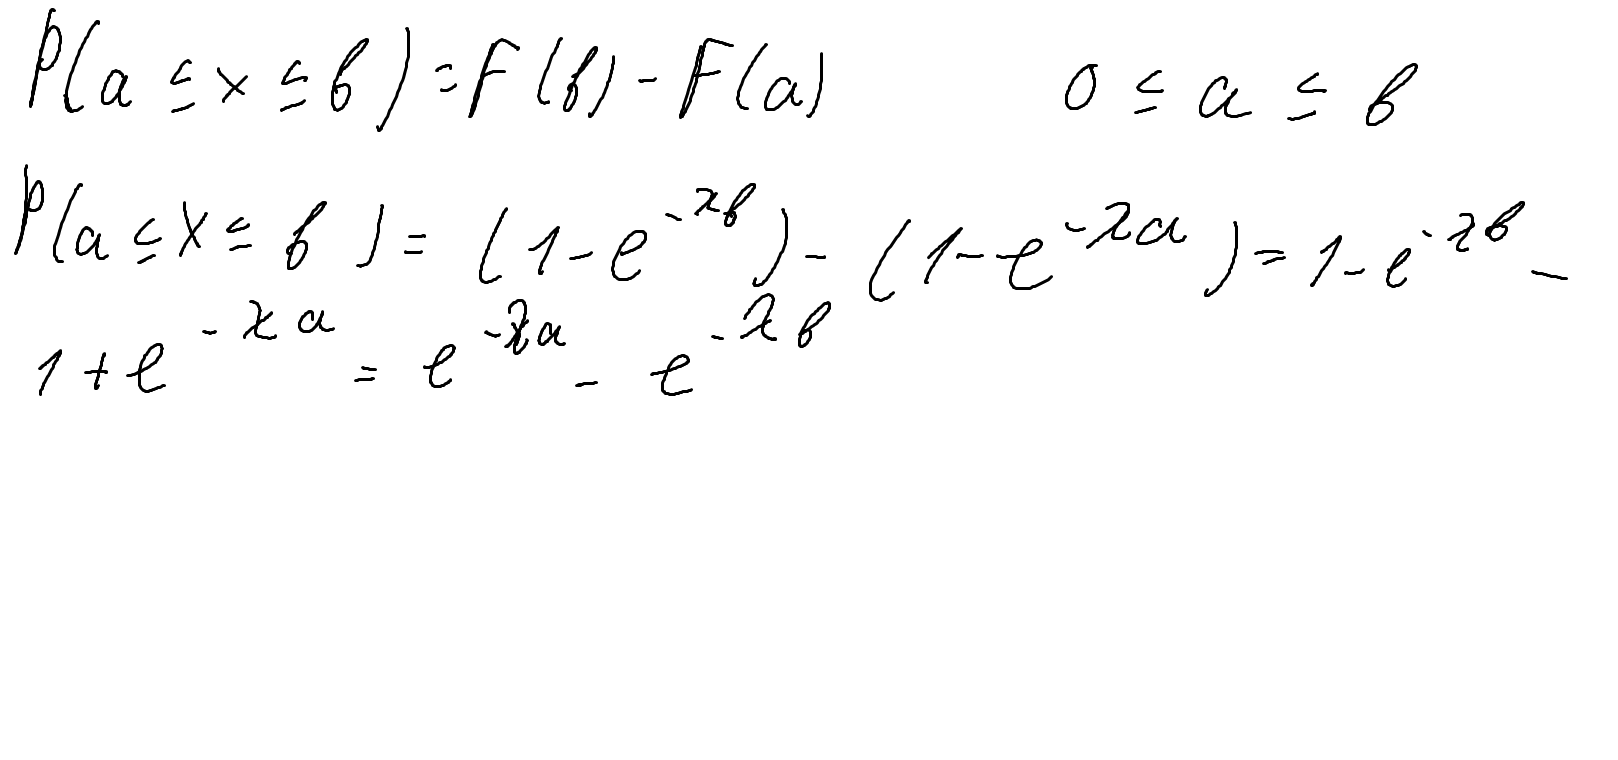 P(a ≤ x ≤ b) = F(b) - F(a)    0 ≤ a ≤ b
P(a ≤ X ≤ b) = (1 - e^{-λb}) - (1 - e^{-λa}) = 1 - e^{-λb} -
1 + e^{-λa} = e^{-λa} - e^{-λb}